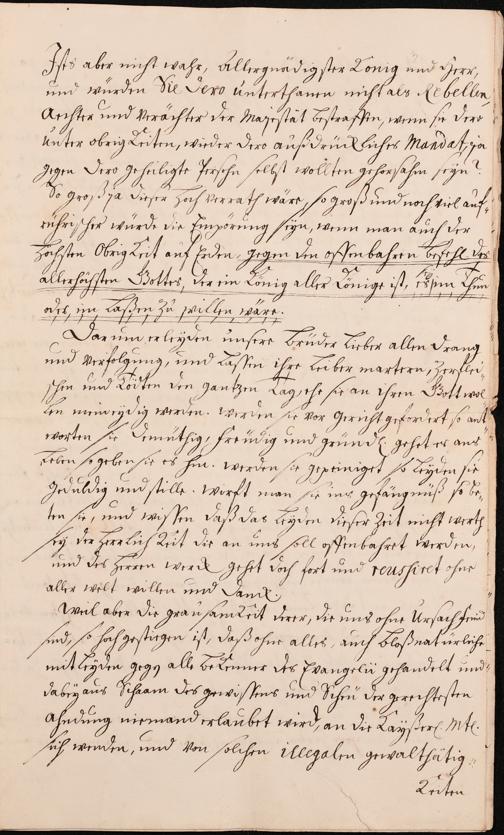 Ists aber nicht wahr, Allergnädigster König und Herr,
und würden Sie Dero Unterthanen nicht als Rebellen,
Aechter und Verächter der Majestät bestraffen, wenn sie dero
Unter obrigkeiten, wieder dero außdrückliches Mandat, ja
gegen Dero geheiligte Persohn selbst wollten gehorsahm seyn?
So groß ja dieser Hoch verrath wäre, so groß und noch viel auf-
rührischer würde die Empörung seyn, wenn man auch der
höchsten Obrigkeit auf Erden, gegen den offenbahren befehl des
allerhöchsten Gottes, der ein König aller Könige ist, es im Thun
oder im Laßen zu willen wäre.
Darum erleyden unsere Brüder lieber allen Drang
und Verfolgung, und lassen ihre Leiber martern, zerflei-
schen und tödten den gantzen Tag, ehe sie an ihren Gott wol-
len meineydig werden. Werden sie vor Gericht gefordert so ant
worten sie demüthig, freudig und gründl. gehet es ans
Leben so geben sie es hin. Werden sie gepeiniget so leyden sie
geduldig und stille. Wirft man sie ins gefängnüß so be-
ten sie, und wissen daß das Leyden dieser Zeit nicht werth
sey der Herrlichkeit die an uns soll offenbahret werden,
und des Herren werck gehet doch fort und reushiret ohne
aller welt willen und Danck.
Weil aber die grausamkeit derer, die uns ohne Ursach feind
sind, so hoch gestiegen ist, daß ohne alles, auch bloß natürliche
mitleyden gegen alle bekenner des Evangelii gehandelt und
dabey aus Schaam des gewissens und Scheu der gerechtesten
ahndung niemand erlaubet wird, an die Kayserl. Mtt.
sich wenden, und von solchen illegalen gewaltthätig-
keiten